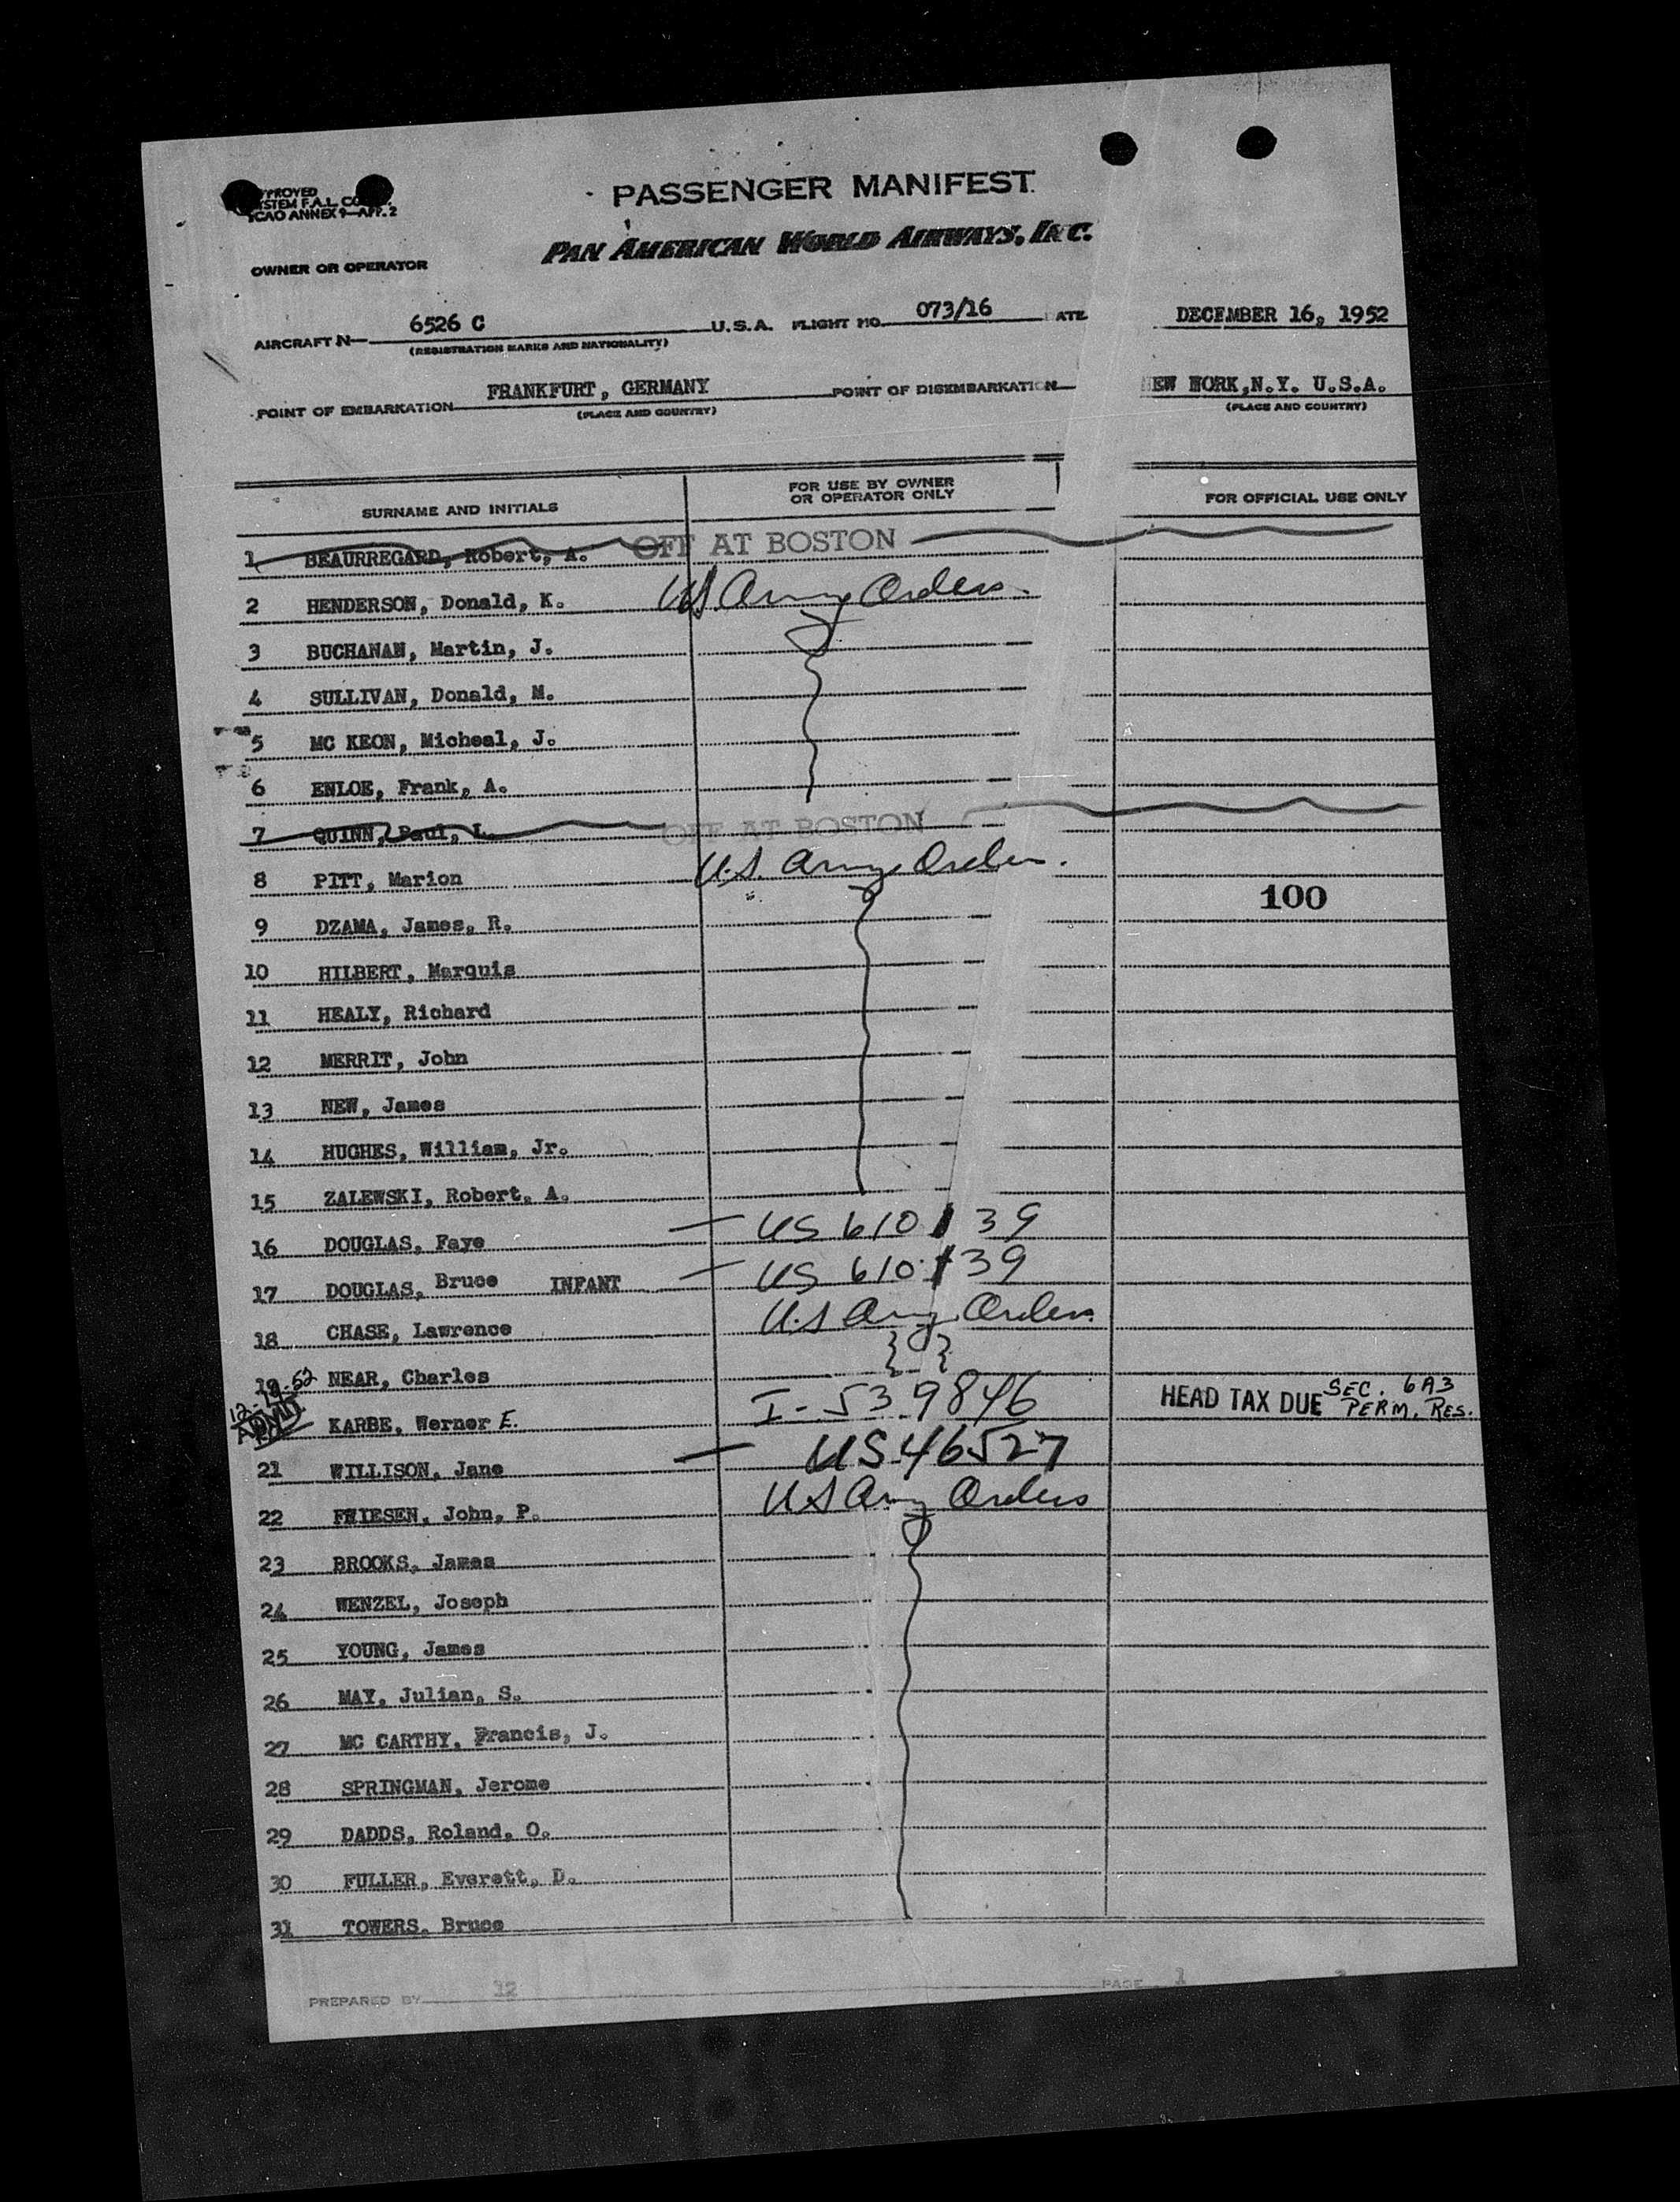 PASSENGER MANIFEST
PROVED
STEM F.A.L.
ICAO ANNEX 9—APP. 2
PAN AMERICAN WORLD AIRWAYS, INC.
OWNER OR OPERATOR
AIRCRAFT N— 6526 C U.S.A. FLIGHT NO. 073/16 ATE DECEMBER 16, 1952
(REGISTRATION MARKS AND NATIONALITY)
POINT OF EMBARKATION FRANKFURT, GERMANY POINT OF DISEMBARKATION EW WORK,N.Y. U.S.A.
(PLACE AND COUNTRY) (PLACE AND COUNTRY)
SURNAME AND INITIALS FOR USE BY OWNER OR OPERATOR ONLY FOR OFFICIAL USE ONLY
1 BEAURREGARD, Robert, A. OFF AT BOSTON
2 HENDERSON, Donald, K. US Army Orders.
3 BUCHANAN, Martin, J.
4 SULLIVAN, Donald, M.
5 MC KEON, Micheal, J.
6 ENLOE, Frank, A.
7 QUINN, Paul, L. OFF AT BOSTON
8 PITT, Marion U.S. Army Orders.
100
9 DZAMA, James, R.
10 HILBERT, Marquis
11 HEALY, Richard
12 MERRIT, John
13 NEW, James
14 HUGHES, William, Jr.
15 ZALEWSKI, Robert, A.
16 DOUGLAS, Faye — US 610 139
17 DOUGLAS, Bruce INFANT — US 610 139
18 CHASE, Lawrence U.S Army Orders
19 NEAR, Charles
KARBE, Werner E. I-539846 HEAD TAX DUE SEC. 6A3 PERM. RES.
21 WILLISON, Jane — US 46527
22 FRIESEN, John, P. US Army Orders
23 BROOKS, James
24 WENZEL, Joseph
25 YOUNG, James
26 MAY, Julian, S.
27 MC CARTHY, Francis, J.
28 SPRINGMAN, Jerome
29 DADDS, Roland, O.
30 FULLER, Everett, D.
31 TOWERS, Bruce
PREPARED BY 12 PAGE 1